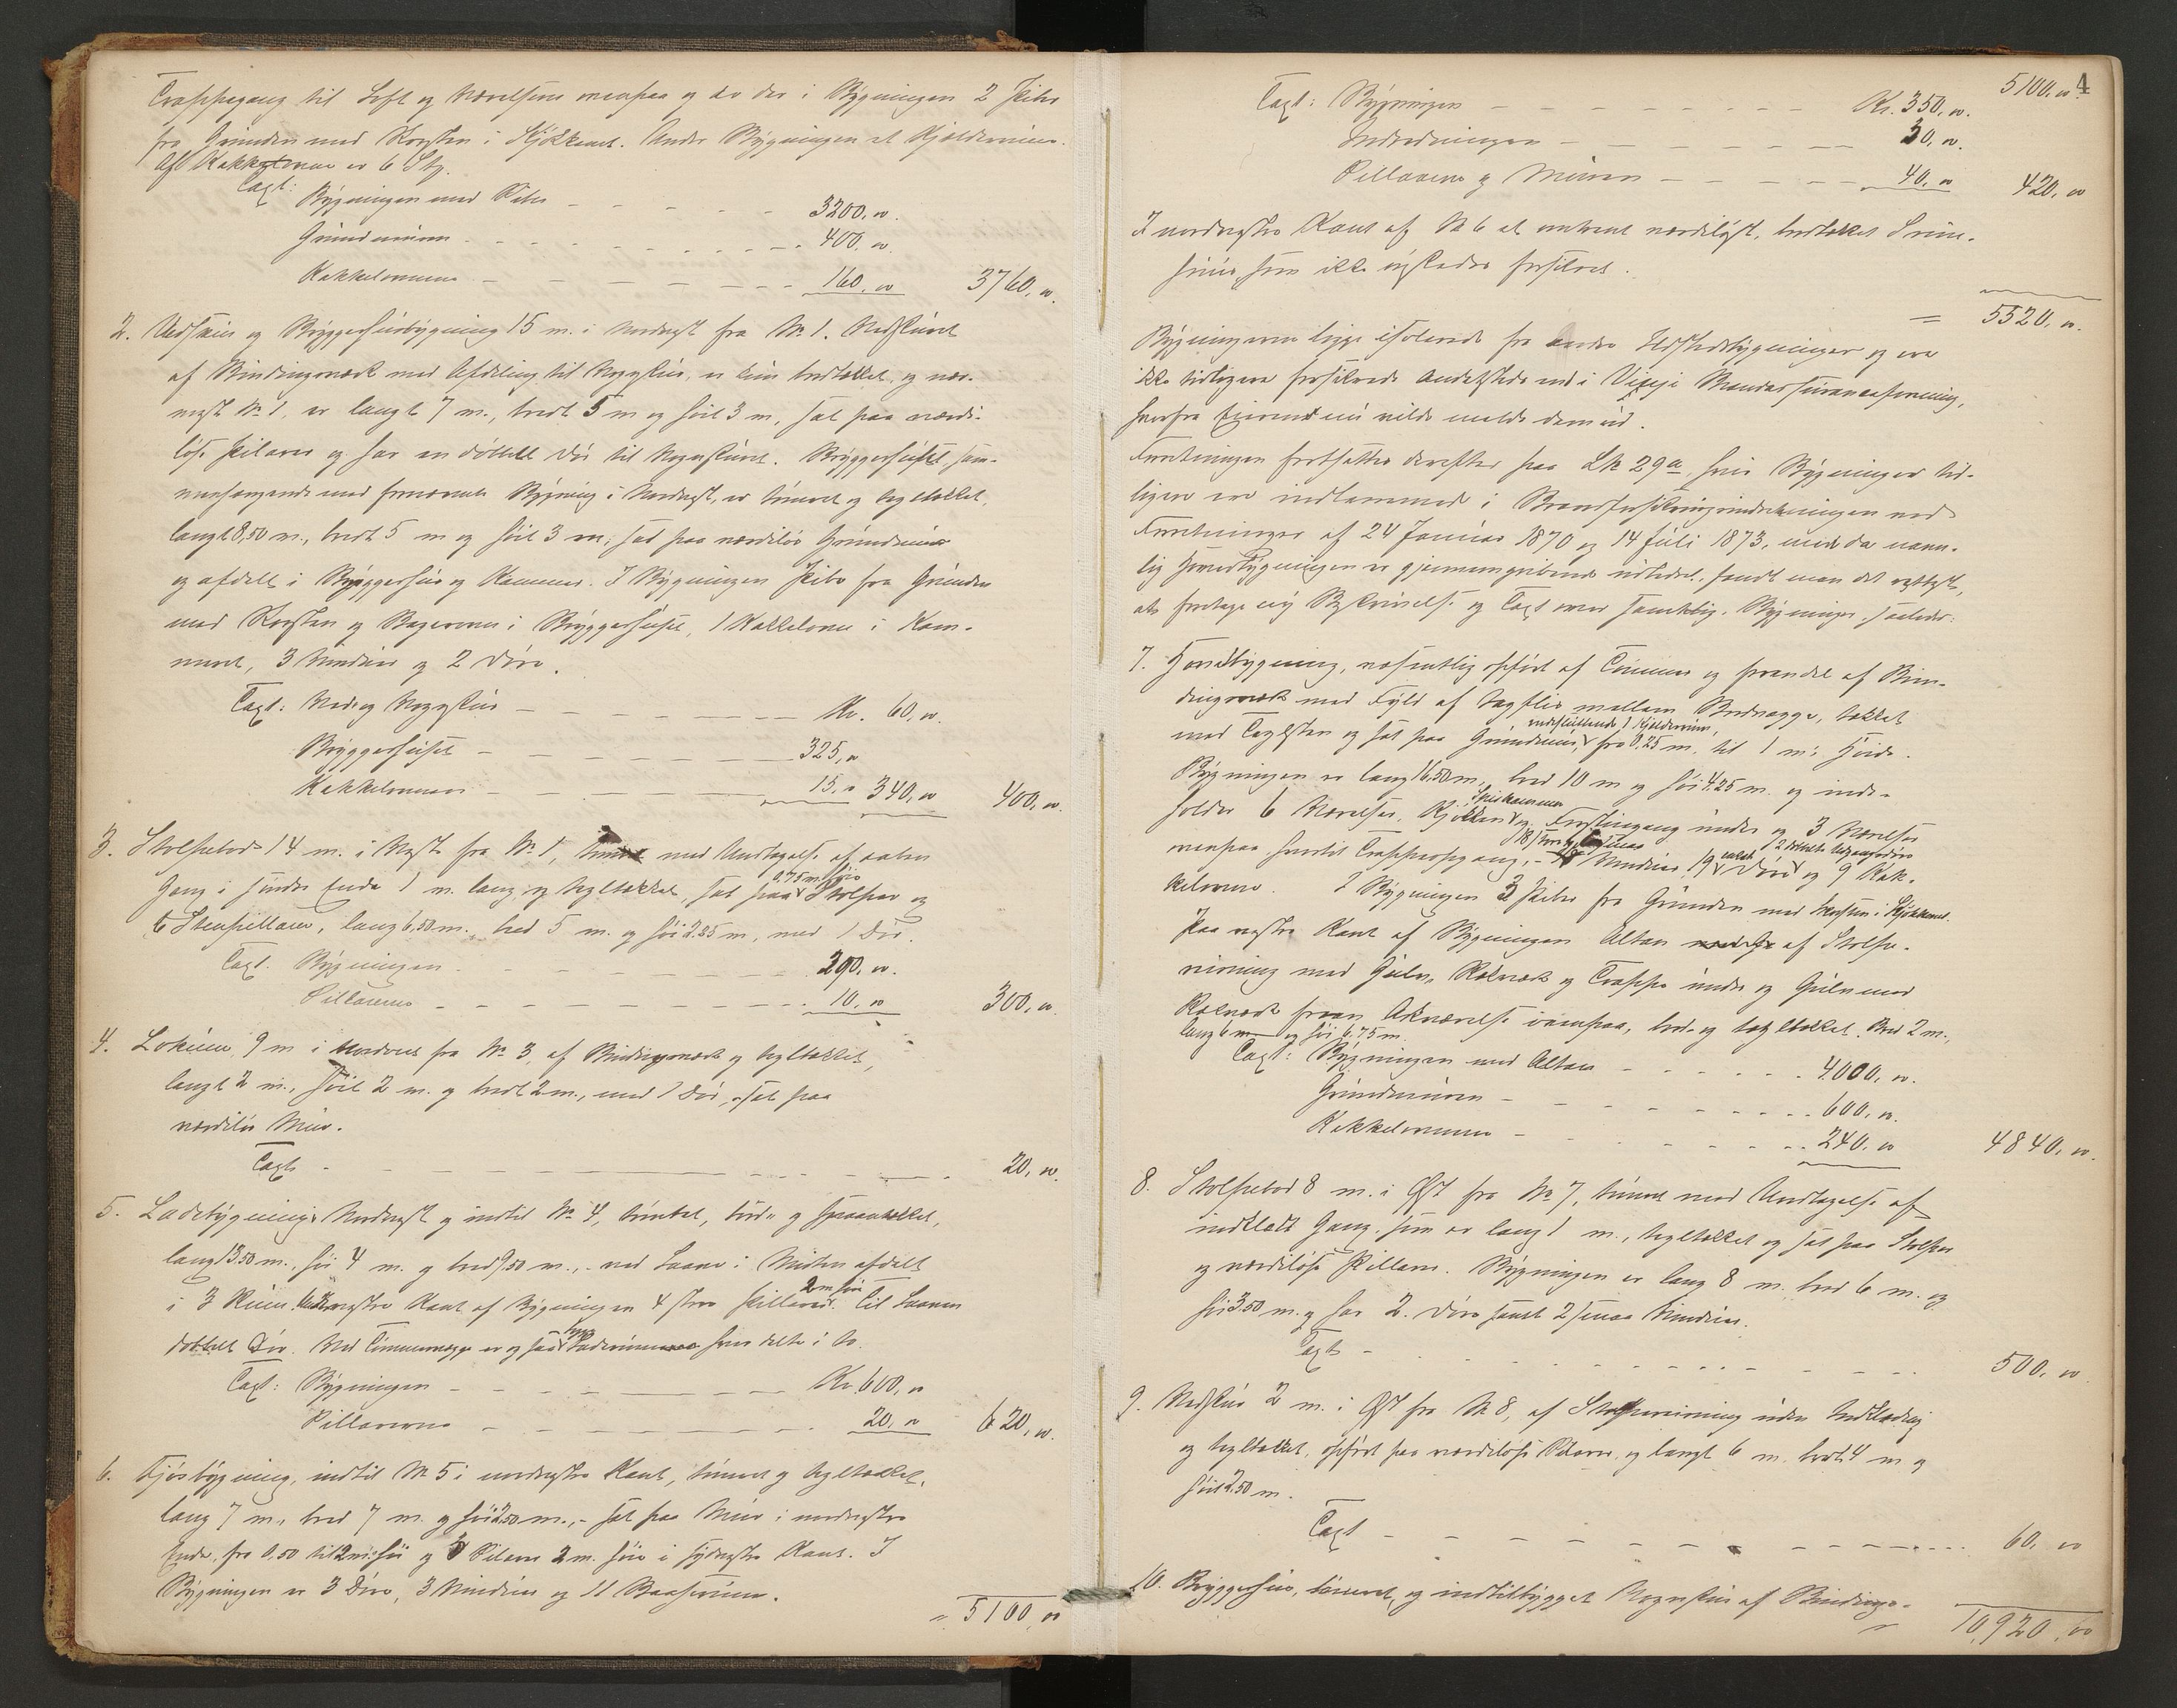 Trappegang til Loft og Værelserne ovenpaa og der i Bygningen 2 Piber
fra Grunden med Korsten i Kjøkkenet. Under Bygningen et Kjælderrum.
Af Kakkelovne er 6 Stk.
Taxt: Bygningen med Piber 3200, 00.
Grundmuren 400, 00.
Kakkelovnene 160, 00 3760, 00.
2. Vedskur og Bryggerhusbygning 15 m. i Nordvest fra No 1. Vedskuret
af Bindingsværk med Afdeling til Vognskur, er bordtækket og nær-
mest No 1, er langt 7 m., bredt 5 m og høit 3 m, sat paa værdi-
løse Pilarer og har en dobbelt Dør til Vognskuret. Bryggerhuset, sam-
menhængende med fornævnte Bygning i Nordvest, er tømret og tegltækket,
langt 8,50 m., bredt 5 m og høit 3 m; sat paa værdiløs Grundmur
og afdelt i Bryggerhus og Kammer. I Bygningen Pibe fra Grunden
med Korsten og Bagerovn i Bryggerhuset, 1 Kakkelovn i Kam-
meret, 3 Vinduer og 2 Døre.
Taxt: Ved og Vognskur Kr. 60, 00.
Bryggerhuset 325, 00
Kakkelovnen 15, 00 340, 00 400, 00.
3. Stolpebod 14 m. i Vest fra No 1, tømret med Undtagelse af aaben
Gang i søndre Ende 1 m. lang og tegltækket, sat paa 0,75 m. høie Stolper og
6 Stenpillarer, lang 6,50 m., bred 5 m. og høi 2.85 m, med 1 Dør.
Taxt. Bygningen 290, 00.
Pillarerne 10, 00 300, 00.
4. Lokum, 9 m i Nordvest fra No 3, af Bindingsværk og tegltækket,
langt 2 m., høit 2 m. og bredt 2 m., med 1 Dør, sat paa
værdiløs Mur.
Taxt 20, 00.
5. Ladebygning i Nordvest og indtil No 4, tømret, bord- og spaantækket,
lang 13.50 m., høi 4 m. og bred 9,50 m., ved Laave i Midten afdelt
i 3 Rum. vestre Kant af Bygningen 4 store Pillarer 2 m høie. Til Laaven
dobbelt Dør. Ved Tømmervægge er hver delte i to.
Taxt: Bygningen Kr. 600, 00
Pillarerne 20. 00 620, 00.
6. Fjøsbygning, indtil No 5 i nordvestre Kant, tømret og tegltækket,
lang 7 m., bred 7 m. og høi 2,50 m.,- sat paa Mur i nordvestre
Ende, fra 0,50 til 2 m: høi og 3 Pilarer 2 m. høie i sydvestre Kant. I
Bygningen er 3 Døre, 3 Vinduer og 11 Baaserum.
= 5100, 00
5100, 00. 4
Taxt: Bygningen Kr. 350, 00.
Indredningen 30, 00.
Pillarerne og Muren 40, 00 420, 00
I nordvestre Kant af No 6 et omtrent værdiløst, bordtækket Svine-
huus, som ikke ønskedes forsikret.
= 5520, 00.
Bygningerne ligge isolerede fra andre Udstedsbygninger og ere
ikke tidligere forsikrede andetsteds end i Brandassuranceforening,
hvorfra Eieren nu vilde melde dem ud.
Forretningen fortsattes derefter paa Lb 29a, hvis Bygninger tid-
ligere ere indlemmede i Brandforsikringsindretningen ved
Forretninger af 24 Januar 1870 og 14 Juli 1873, med da navn-
lig Hovedbygningen er gjennemgribende udbedret, fandt man det rettest,
at foretage ny Beskrivelse og Taxt over samtlige Bygninger saaledes:
7. Hovedbygning, væsentlig opført af Tømmer og forendel af Bin-
dingsværk med Fyld af Tagflis mellem Bordvægge, tækket
med Taglsten og sat paa Grundmur, indesluttende 1 Kjælderrum, fra 0,25 m. til 1 m: Høide.
Bygningen er lang 16,50 m., bred 10 m og høi 4.25 m. og inde-
holder 6 Værelser, Kjøkken, Spiskammer og Forstuegang under og 3 Værelser
ovenpaa, hvortil Trappeopgang, Vinduer, 19 enkelte Døre, 2 dobbelte Udgangsdøre og 9 Kak-
kelovne. I Bygningen 3 Piber fra Grunden med Korsten i Kjøkkenet.
Paa vestre Kant af Bygningen Altan af Stolpe-
reisning med Gulv, Rækværk og Trappe under og Gulv med
Rækværk foran Arkværelse ovenpaa, bord- og tegltækket. Bred 2 m.,
lang 6 m og høi 6.75 m
Taxt: Bygningen med Altan 4000, 00.
Grundmuren 600, 00.
Kakkelovnene 240, 00 4840, 00.
8. Stolpebod 8 m. i Øst fra No 7, tømret med Undtagelse af
indklædt Gang, som er lang 1 m., tegltækket og sat paa Stolper
og værdiløse Pillarer. Bygningen er lang 8 m. bred 6 m. og
høi 3.50 m. og har 2. Døre samt 2 smaa Vinduer.
Taxt 500, 00
9. Vedskur 2 m. i Øst fra No 8, af Stolpereisning uden Indklædning
og tegltækket, opført paa værdiløse Pilarer, og langt 6 m. bredt 4 m og
høit 2.50 m.
Taxt 60, 00
10. Bryggerhus, tømret, og indtilbygget Vognskur af Bindings-
" 10,920, 00